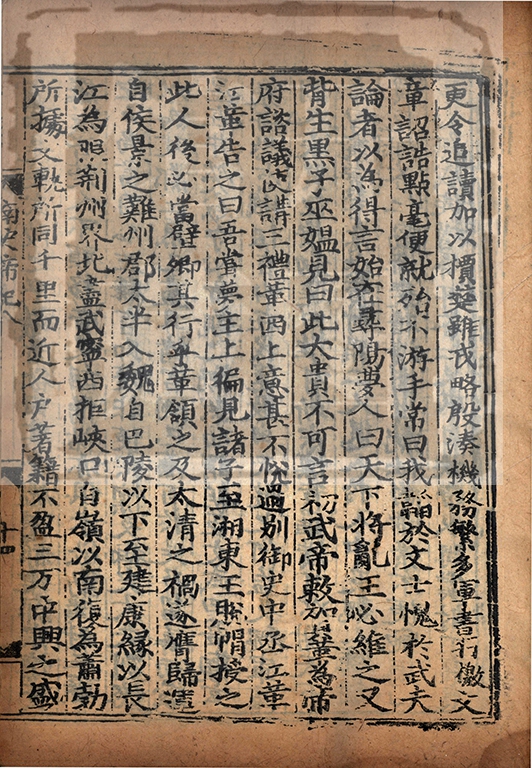 更令追讀加以檟楚雖戎略殷湊機務繁多軍書行檄文
章詔誥點毫便就殆不游手常曰我韜於文士愧於武夫
論者以為得言始在尋陽夢人曰天下將亂王必維之又
背生黑子巫媼見曰此大貴不可言初武帝敕賀革為帝
府諮議使講三禮革西上意甚不悅過別御史中丞江革
江革告之曰吾嘗夢主上徧見諸子至湘東王脫帽授之
此人後必當璧卿其行乎革領之及太清之禍遂膺歸運
自侯景之難州郡太半入魏自巴陵以下至建康緣以長
江為限荊州界北盡武寧西拒峽口自嶺以南復為蕭勃
所據文軌所同千里而近人戶著籍不盈三萬中興之盛
南史帝紀八
十四